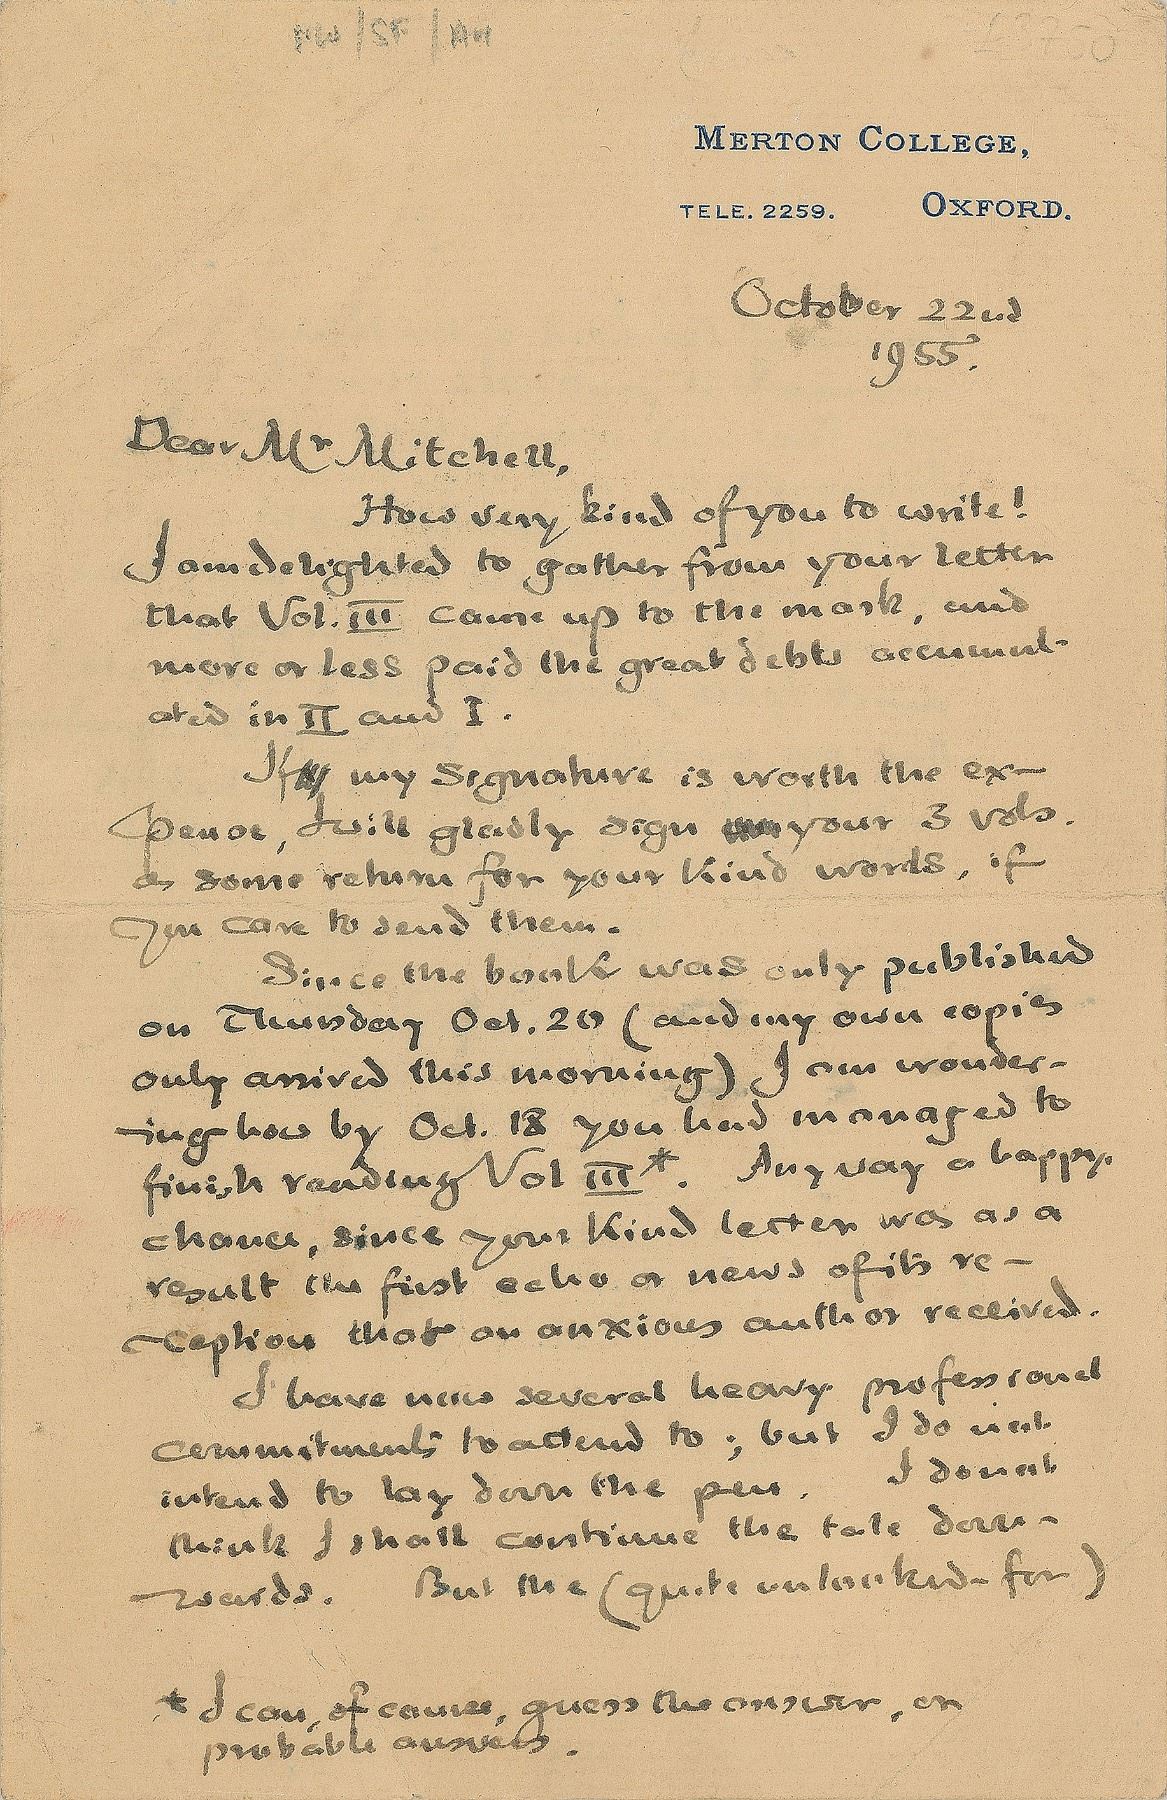 MERTON COLLEGE,
TELE. 2259. OXFORD.
October 22nd
1955.
Dear Mr Mitchell,
How very kind of you to write!
I am delighted to gather from your letter
that Vol. III came up to the mark, and
more or less paid the great debts accumul-
ated in II and I.
If my signature is worth the ex-
pense, I will gladly sign your 3 vols.
as some return for your kind words, if
you care to send them.
Since the book was only published
on Thursday Oct. 20 (and my own copies
only arrived this morning) I am wonder-
ing how by Oct. 18 you had managed to
finish reading Vol III*. Anyway a happy
chance, since your kind letter was as a
result the first echo or news of its re-
ception that an anxious author received.
I have now several heavy professional
commitments to attend to; but I do not
intend to lay down the pen. I do not
think I shall continue the tale down-
wards. But the (quite unlooked-for)
* I can, of course, guess the answer, or
probable answers.